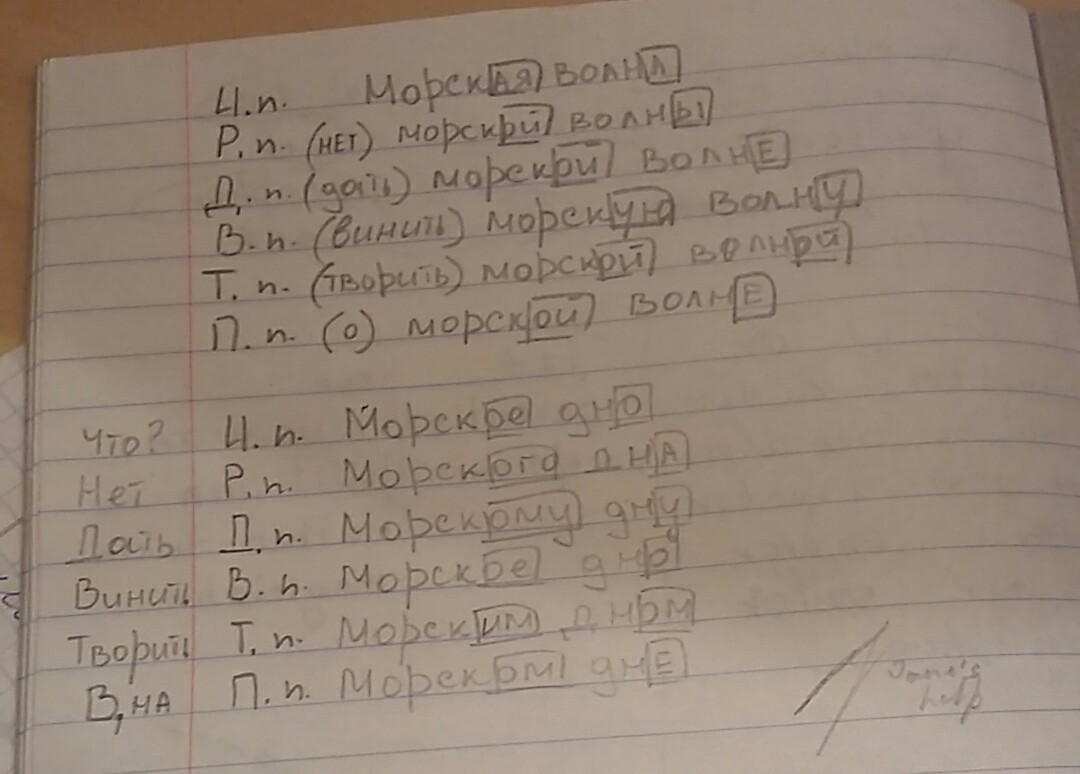 И.п. Морская волна
Р.п. (нет) морской волны
Д.п. (дать) морской волне
В.п. (винить) морскую волну
Т.п. (творить) морской волной
П.п. (о) морской волне
Что? И.п. Морское дно
Нет Р.п. Морского дна
Дать Д.п. Морскому дну
Винить В.п. Морское дно
Творить Т.п. Морским дном
В, на П.п. Морском дне
help